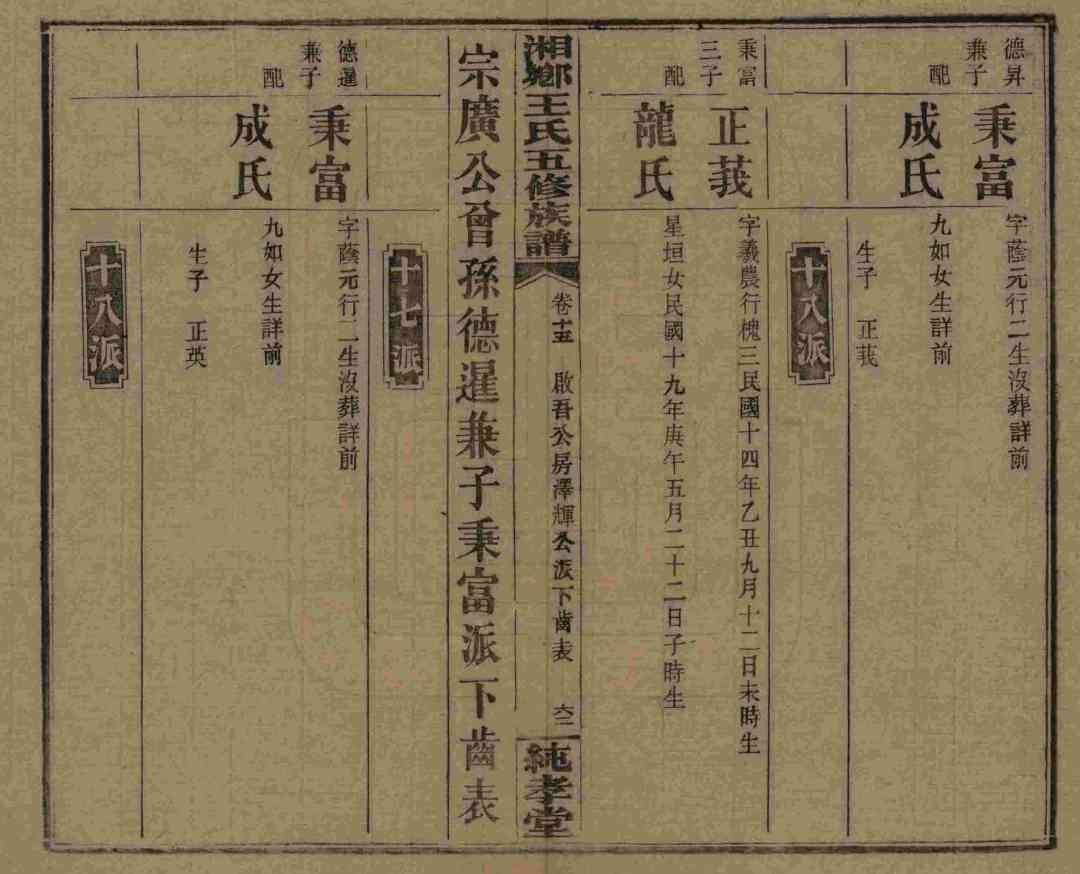 德昇
兼子
秉富
字蔭元行二生沒葬詳前
配
成氏
九如女生詳前
生子 正莪
十八派
秉富
三子
正莪
字義農行槐三民國十四年乙丑九月十二日未時生
配
龍氏
星垣女民國十九年庚午五月二十二日子時生
湘鄉王氏五修族譜
卷十五 啟吾公房澤輝公派下齒表 六二
純孝堂
宗廣公曾孫德暹兼子秉富派下齒表
十七派
德暹
兼子
秉富
字蔭元行二生沒葬詳前
配
成氏
九如女生詳前
生子 正英
十八派